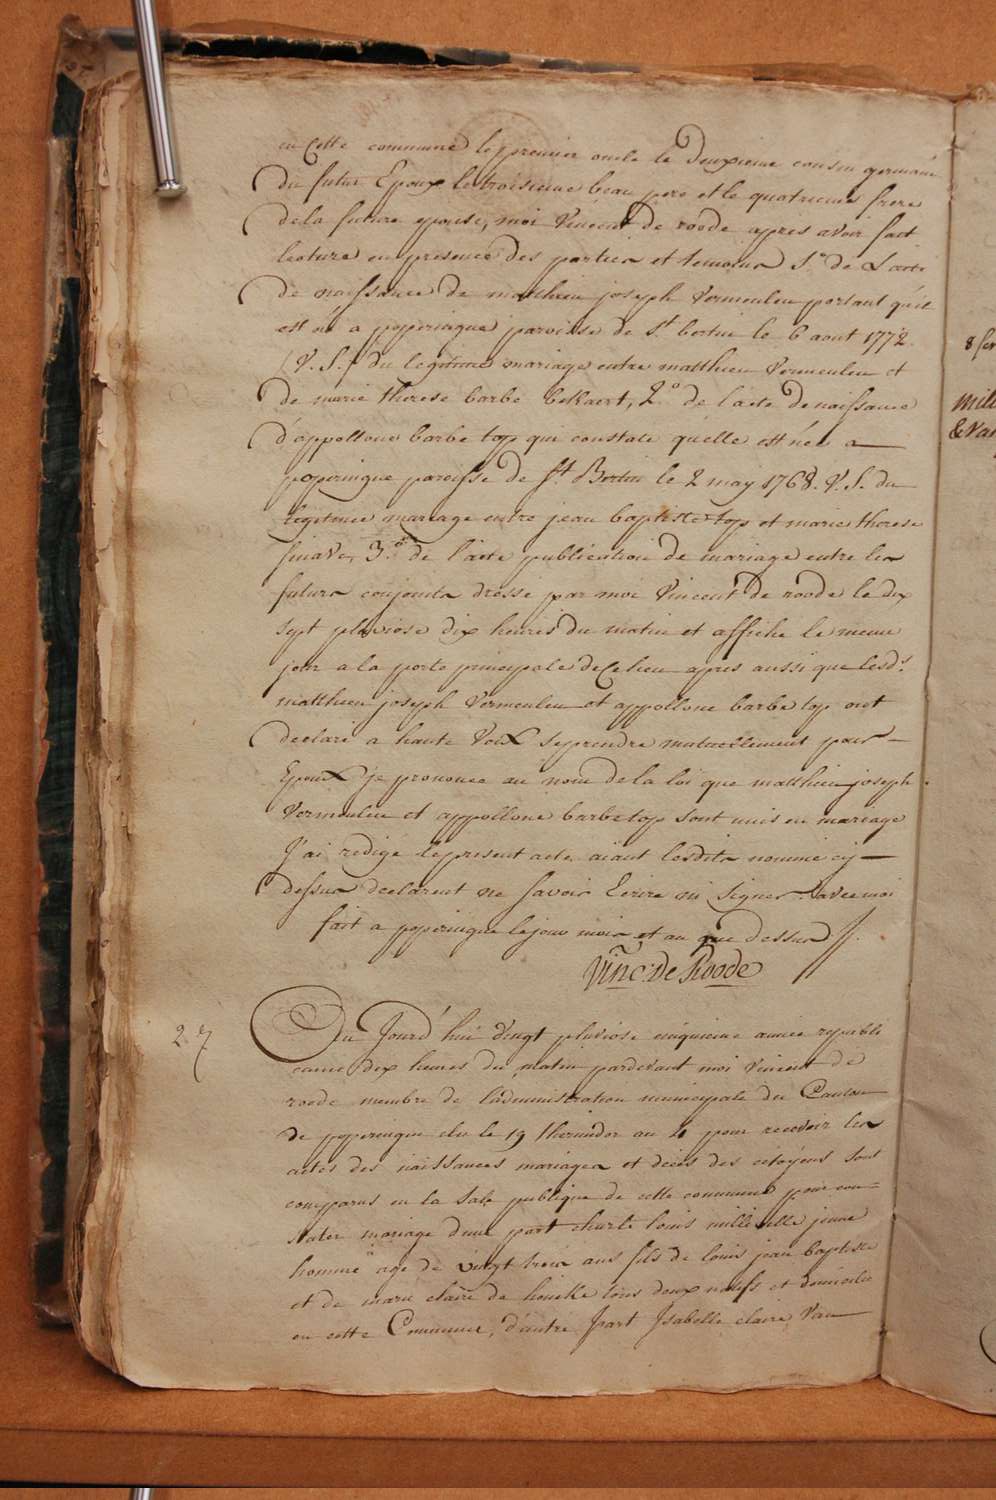 en Cette commune le premier oncle le Deuxieme cousin germain
du futur Epoux le troisieme beau pere et le quatrieme frere
de la future epouse, moi Vincent de roode apres avoir fait
lecture en presence des parties et temoins 1.° de L'acte
de naissance de matthieu joseph Vermeulen portant qu'il
est né a poperingue paroisse de St. bertin le 6 aout 1772
(V. S.) du legitime mariage entre matthieu Vermeulen et
de marie therese barbe bekaert, 2.° de l'acte de naissance
d'appollone barbe top qui constate quelle est née a
poperingue paroisse de St Bertin le 2 may 1768. V. S. du
legitime mariage entre jean baptiste top et marie therese
3.° de l'acte publication de mariage entre les
futurs conjoints dressé par moi Vincent de roode le dix
sept pluviose dix heures du matin et affiche le meme
jour a la porte principale de Ce lieu apres aussi que lesds.
matthieu joseph Vermeulen et appollone barbe top ont
declaré a haute Voix se prendre mutuellement pour
Epoux je prononce au nom de la loi que matthieu joseph
Vermeulen et appollone barbe top sont unis en mariage
J'ai redigé le present acte aiant lesdits nomme cy
dessus declarent ne savoir Ecrire ni signer avec moi
fait a poperingue le jour mois et an que dessus
Vinc: De Roode
27
Du Jourd'hui Vingt pluviose cinquieme année republi
caine dix heures du matin pardevant moi Vincent de
roode membre de l'administration municipale du Canton
de poperingue elu le 19 thermidor an 4 pour recevoir les
actes des naissances mariages et décès des citoyens sont
comparus en la Sale publique de cette commune pour con=
stater mariage d'une part charle louis millevelle jeune
homme agé de vingt trois ans fils de louis jean baptiste
et de marie claire de houelle tous deux natifs et domicilie
en cette Commune, d'autre part Isabelle claire Van
8
mill
& Van